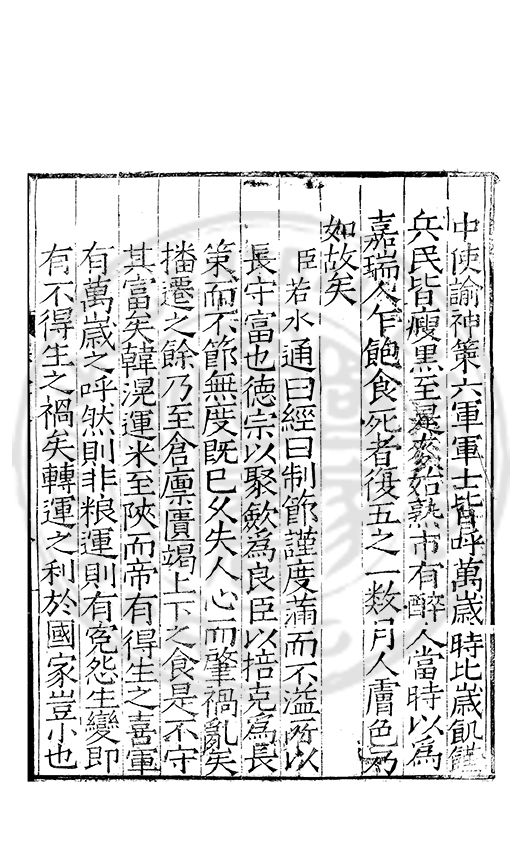 中使諭神策六軍軍士皆呼萬歲時比歲飢饉
兵民皆瘦黑至是麥始熟市有醉人當時以爲
嘉瑞人乍飽食死者復五之一數月人膚色乃
如故矣
臣若水通曰經曰制節謹度滿而不溢所以
長守富也德宗以聚歛爲良臣以掊克爲長
策而不節無度既已久失人心而肇禍亂矣
播遷之餘乃至倉廪匱竭上下之食是不守
其富矣韓滉運米至陜而帝有得生之喜軍
有萬歲之呼然則非粮運則有寃怨生變即
有不得生之禍矣轉運之利於國家豈小也